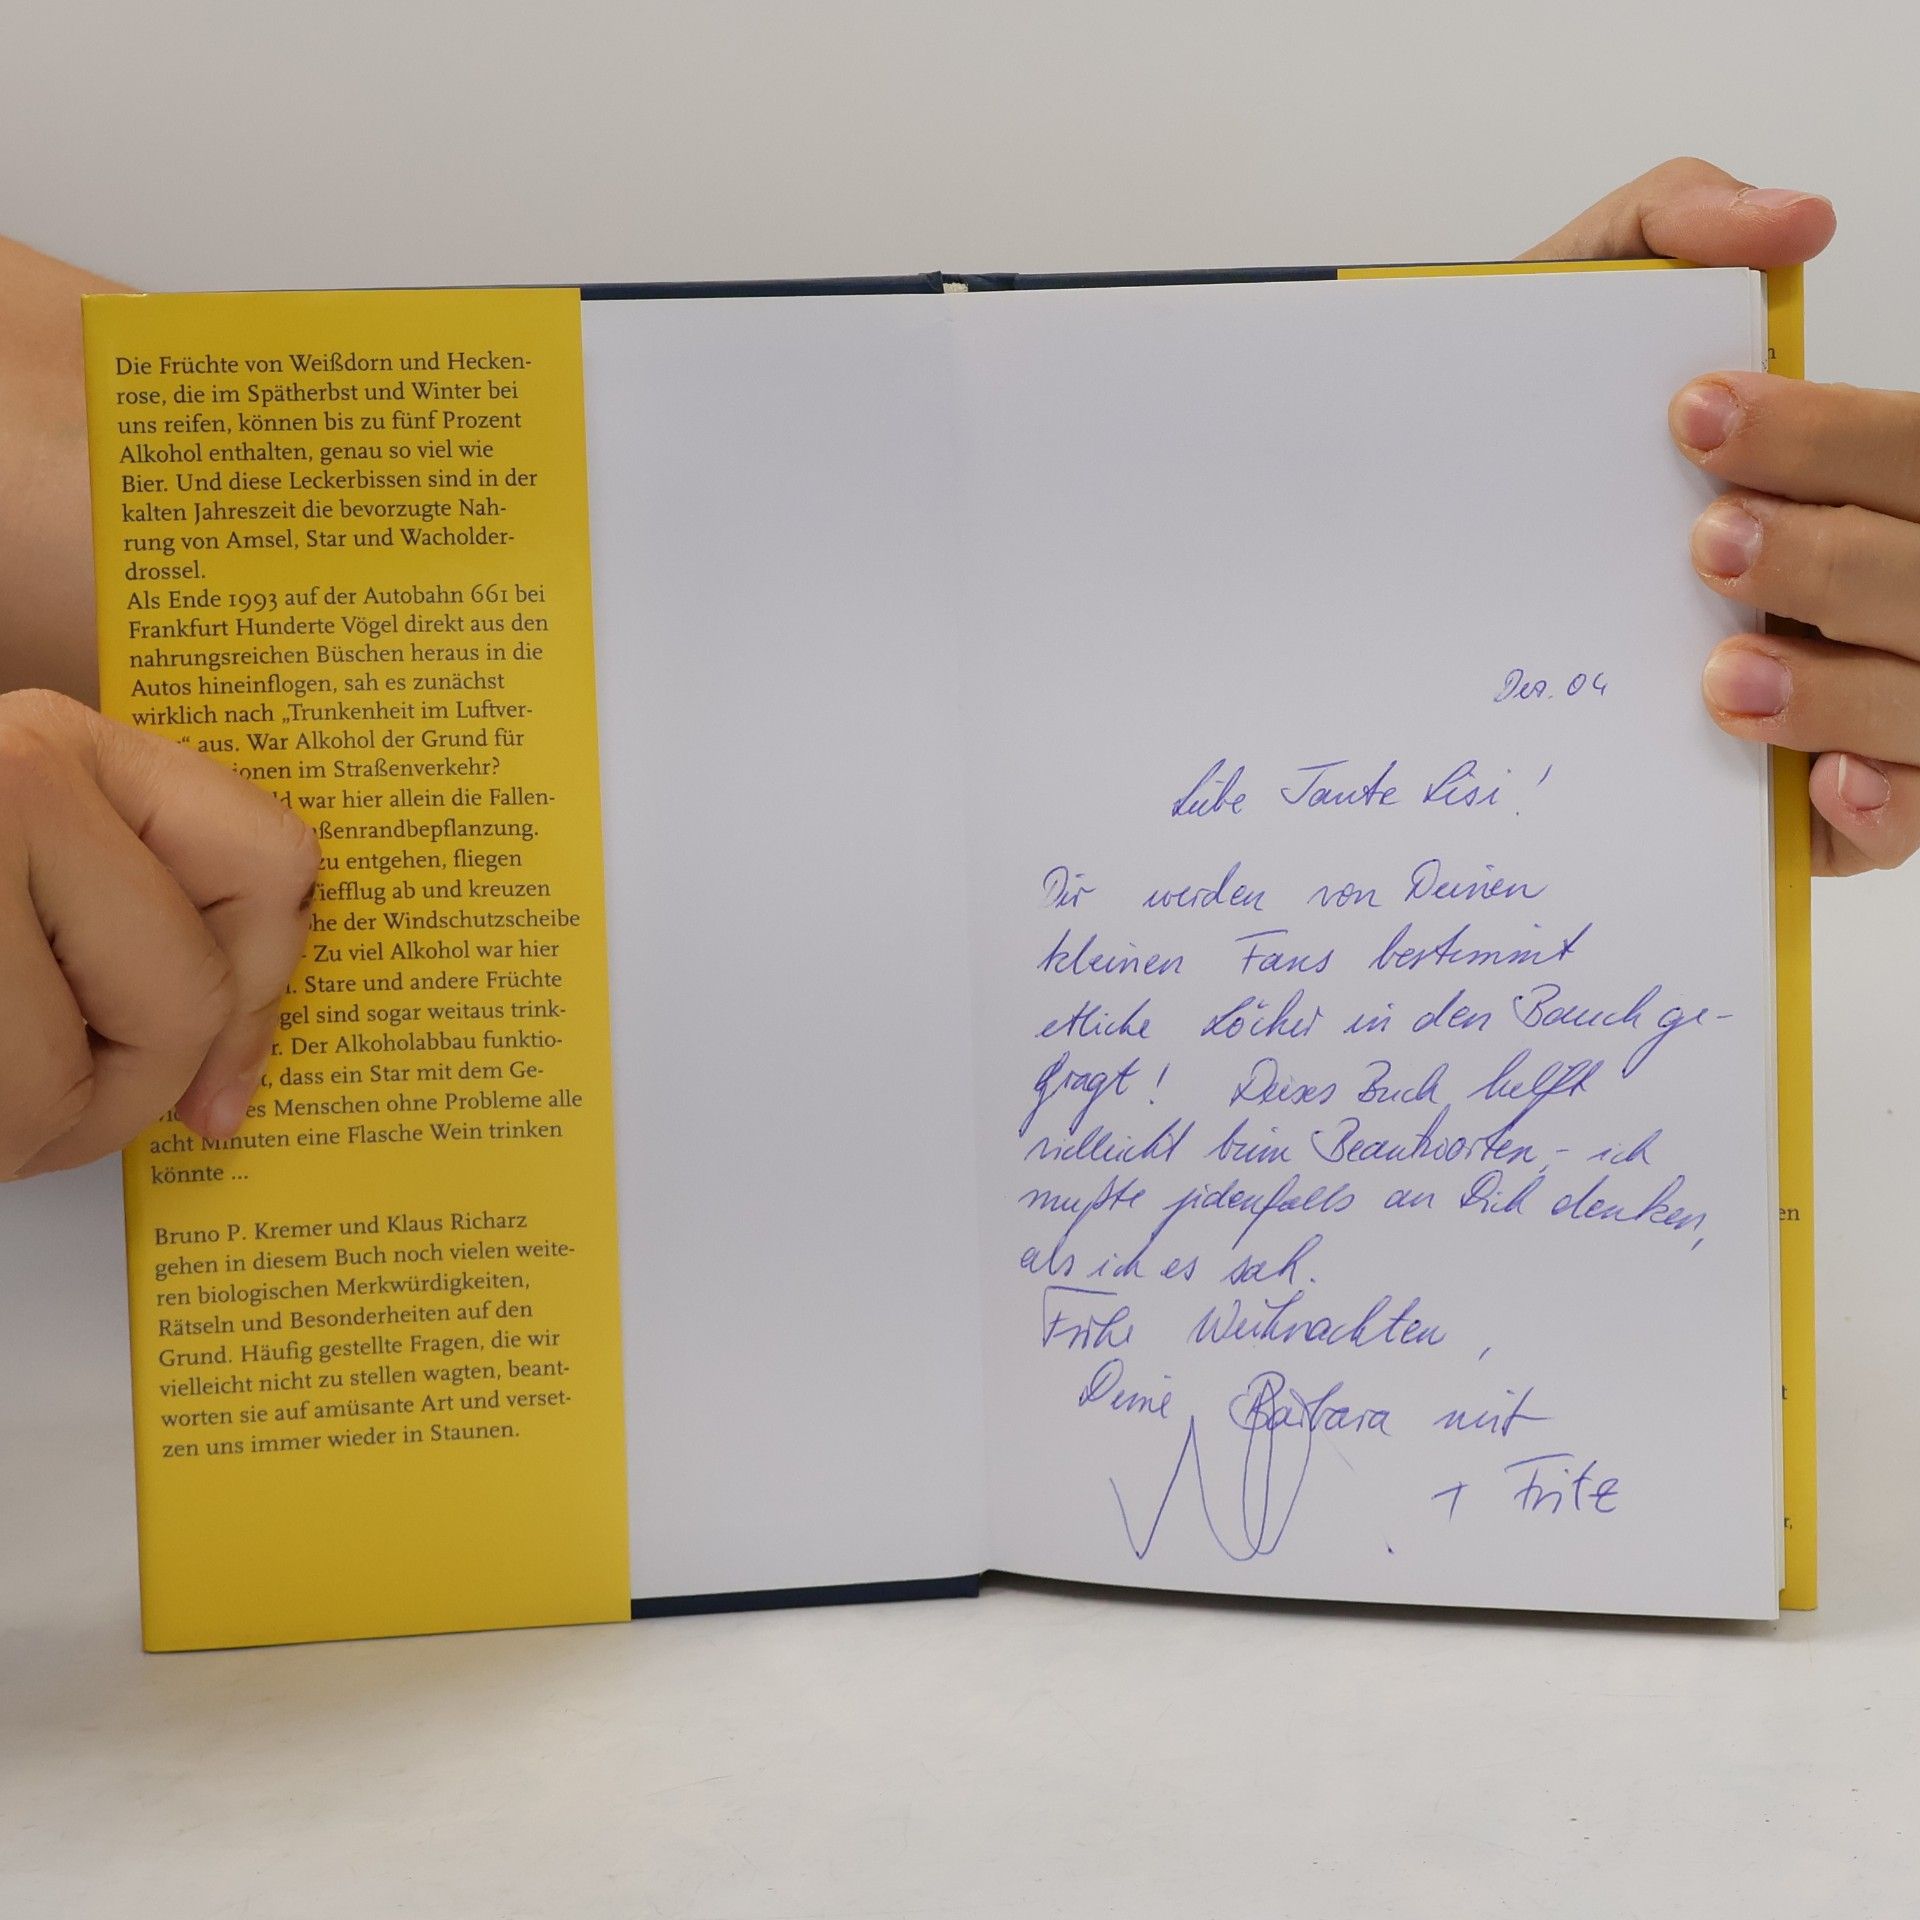 Die Früchte von Weißdorn und Hecken-
rose, die im Spätherbst und Winter bei
uns reifen, können bis zu fünf Prozent
Alkohol enthalten, genau so viel wie
Bier. Und diese Leckerbissen sind in der
kalten Jahreszeit die bevorzugte Nah-
rung von Amsel, Star und Wacholder-
drossel.
Als Ende 1993 auf der Autobahn 661 bei
Frankfurt Hunderte Vögel direkt aus den
nahrungsreichen Büschen heraus in die
Autos hineinflogen, sah es zunächst
wirklich nach „Trunkenheit im Luftver-
“ aus. War Alkohol der Grund für
ionen im Straßenverkehr?
ld war hier allein die Fallen-
aßenrandbepflanzung.
zu entgehen, fliegen
Tiefflug ab und kreuzen
he der Windschutzscheibe
- Zu viel Alkohol war hier
. Stare und andere Früchte
gel sind sogar weitaus trink-
r. Der Alkoholabbau funktio-
t, dass ein Star mit dem Ge-
es Menschen ohne Probleme alle
acht Minuten eine Flasche Wein trinken
könnte ...
Bruno P. Kremer und Klaus Richarz
gehen in diesem Buch noch vielen weite-
ren biologischen Merkwürdigkeiten,
Rätseln und Besonderheiten auf den
Grund. Häufig gestellte Fragen, die wir
vielleicht nicht zu stellen wagten, beant-
worten sie auf amüsante Art und verset-
zen uns immer wieder in Staunen.
Dez. 04
Liebe Tante Lisi!
Dir werden von Deinen
kleinen Fans bestimmt
etliche Löcher in den Bauch ge-
fragt! Dieses Buch helft
vielleicht beim Beantworten, - ich
mußte jedenfalls an Dich denken,
als ich es sah.
Frohe Weihnachten,
Deine Barbara mit
+ Fritz